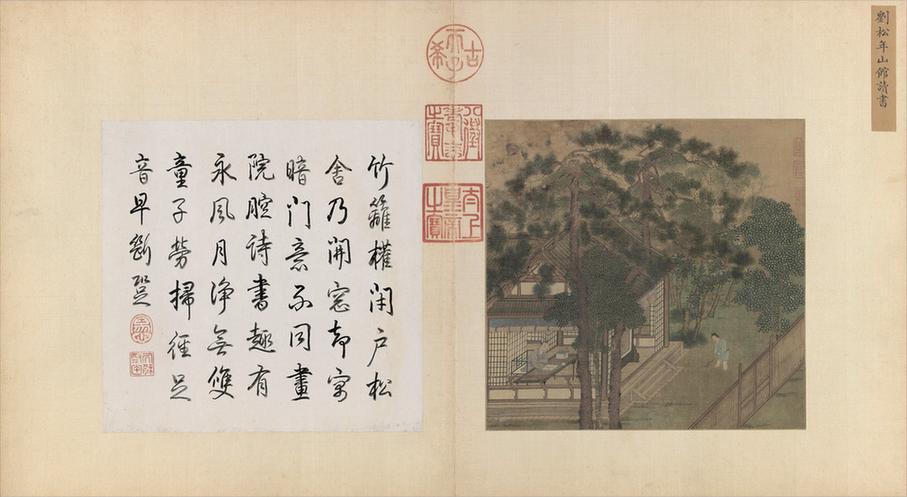 劉松年山館讀書
古希天子
八徵耄念之寶
太上皇帝之寶
竹籬權閉戶松
舍乃開窓却寓
暗門意不同畫
院腔詩書趣有
永風月淨無雙
童子勞掃徑足
音早斷跫